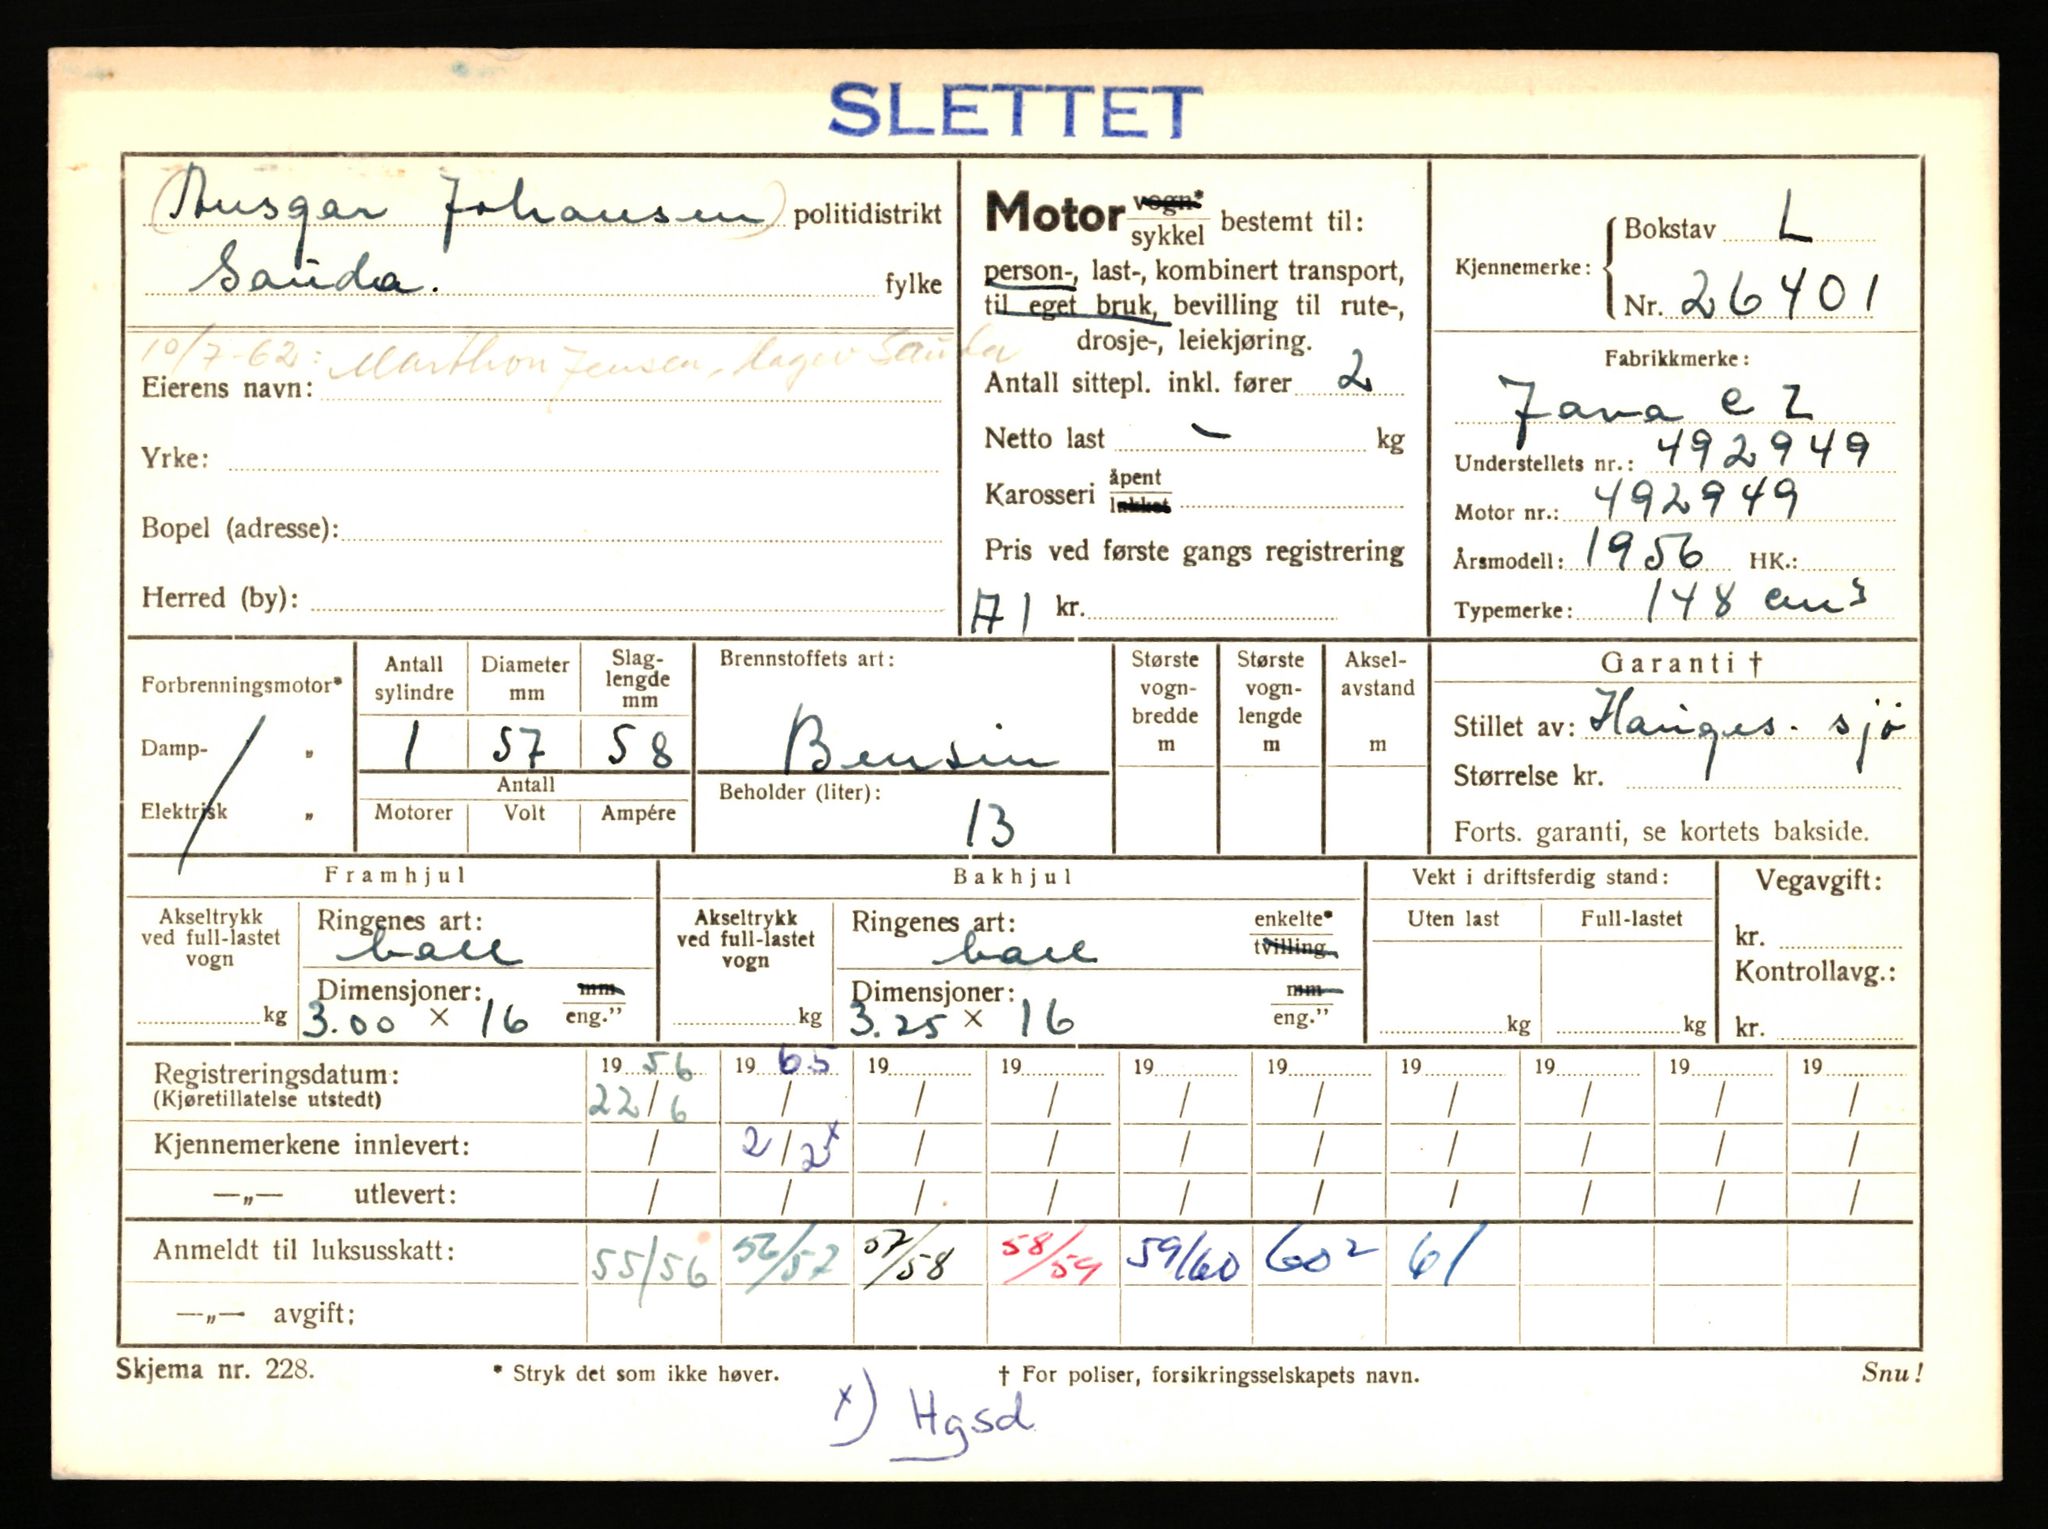 SLETTET
(Ansgar Johansen) politidistrikt
Sauda. fylke
10/7-62: Marthon Jensen, Sauda
Eierens navn:
Yrke:
Bopel (adresse):
Herred (by):
Motor vogn* sykkel bestemt til:
person-, last-, kombinert transport,
til eget bruk, bevilling til rute-,
drosje-, leiekjøring.
Antall sittepl. inkl. fører 2
Netto last - kg
Karosseri åpent lukket
Pris ved første gangs registrering
A1 kr.
Kjennemerke: Bokstav L
Nr. 26401
Fabrikkmerke:
Java c Z
Understellets nr.: 492949
Motor nr.: 492949
Årsmodell: 1956 HK.:
Typemerke: 148 cm3
Forbrenningsmotor*
Damp- „
Elektrisk „
Antall sylindre Diameter mm Slaglengde mm
1 57 58
Antall
Motorer Volt Ampére
Brennstoffets art:
Bensin
Beholder (liter):
13
Største vognbredde m
Største vognlengde m
Akselavstand m
Garanti †
Stillet av: Hauges. sjø
Størrelse kr.
Forts. garanti, se kortets bakside.
Framhjul
Akseltrykk ved full-lastet vogn kg
Ringenes art:
ball
Dimensjoner: mm eng.”
3.00 × 16
Bakhjul
Akseltrykk ved full-lastet vogn kg
Ringenes art: enkelte* tvilling
ball
Dimensjoner: mm eng.”
3.25 × 16
Vekt i driftsferdig stand:
Uten last Full-lastet
kg kg
Vegavgift:
kr.
Kontrollavg.:
kr.
19 56 19 65 19 19 19 19 19 19 19 19
Registreringsdatum:
(Kjøretillatelse utstedt) 22/6 / / / / / / / / /
Kjennemerkene innlevert: / 2/2x / / / / / / / /
—„— utlevert: / / / / / / / / / /
Anmeldt til luksusskatt: 55/56 56/57 57/58 58/59 59/60 60² 61
—„— avgift:
Skjema nr. 228. * Stryk det som ikke høver. † For poliser, forsikringsselskapets navn. Snu!
x) Hgsd